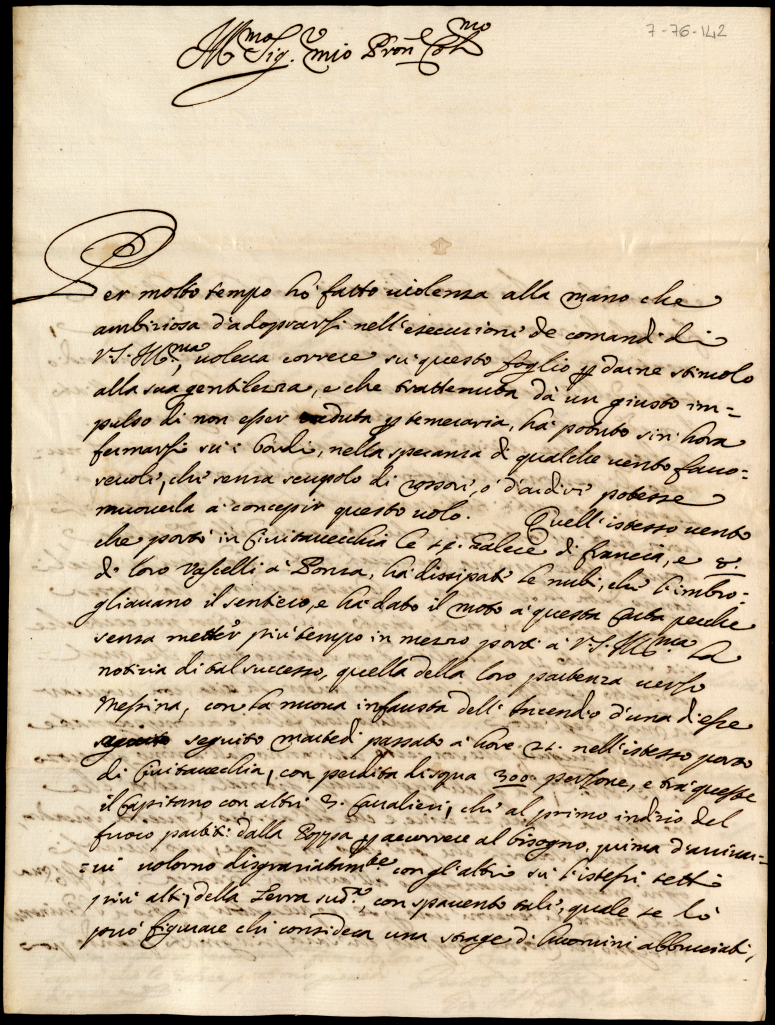 7-76-142
Ill.mo Sig.r mio Pron Col.mo
Per molto tempo hò fatto violenza alla mano che
ambiziosa d'adoprarsi nell'esecuzioni de comandi di
V.S. Ill.ma, voleua correre sù questo foglio p darne stimolo
alla sua gentilezza, e che trattenuta dà un giusto im=
pulso di non esser creduta p temeraria, hà potuto sin hora
fermarsi sù i bordi, nella speranza di qualche vento fauo=
reuole, che senza scrupolo di rossori, ò d'ardiri potesse
muouerla à concepir questo uolo. Quell'istesso uento
che portò in Ciuitauecchia le 24. Galere di francia, e 8.
de loro Vascelli à Ponza, hà dissipate le nubi, che l'imbro=
gliauano il sentiero, e hà dato il moto à questa Carta perche
senza metter più tempo in mezzo porti à V.S. Ill.ma la
notizia di tal successo, quella della loro partenza uerso
Messina, con la nuoua infausta dell'Incendio d'una di esse
seguito martedì passato à hore 21. nell'istesso porto
di Ciuitauecchia, con perdita di sopra 300. persone, e trà queste
il Capitano con altri 3. Caualieri, che al primo indizio del
fuoco partiti dalla Poppa p accorrere al bisogno, prima d'arriuar=
=ui uolorno disgraziatam.te con gl'altri sù l'istessi tetti
più alti della Terra sud.a, con spauento tale, quale se lo
può figurare chi considera una strage di huomini abbruciati,